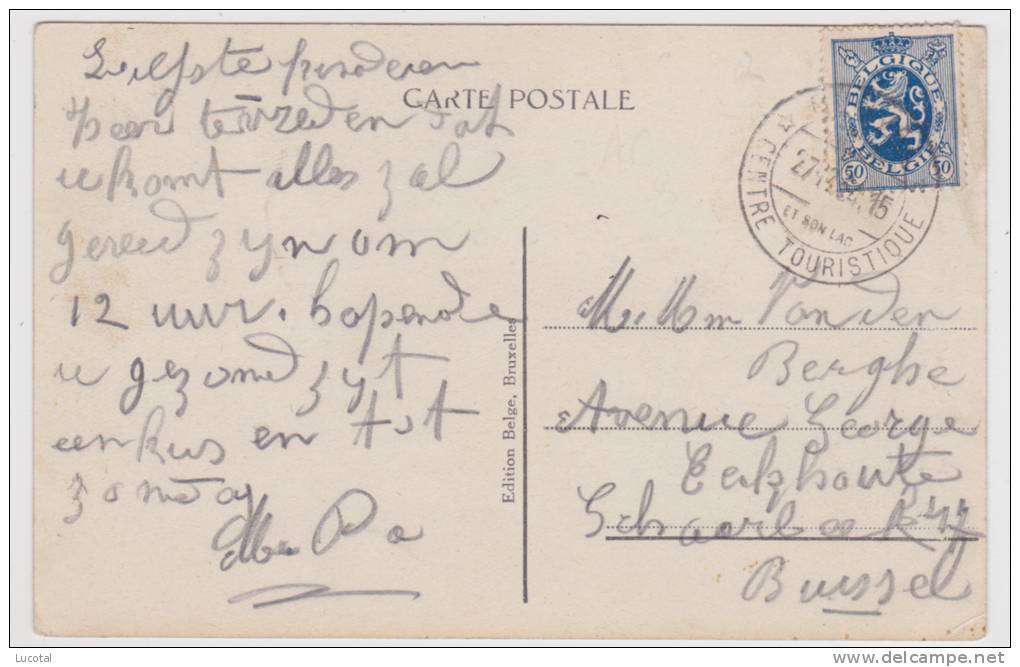 Liefste kinderen
CARTE POSTALE
zeer tevreden dat
u komt alles zal
gereed zyn om
12 uur. hopende
u gezond zyt
een kus en tot
zondag
Pa
Edition Belge, Bruxelles
BELGIQUE
BELGIE
50 50
CENTRE TOURISTIQUE
ET SON LAC
15
M. Mm Vanden
Berghe
Avenue George
Eekhoute
Schaarbeek
Brussel
Lucotal
www.delcampe.net